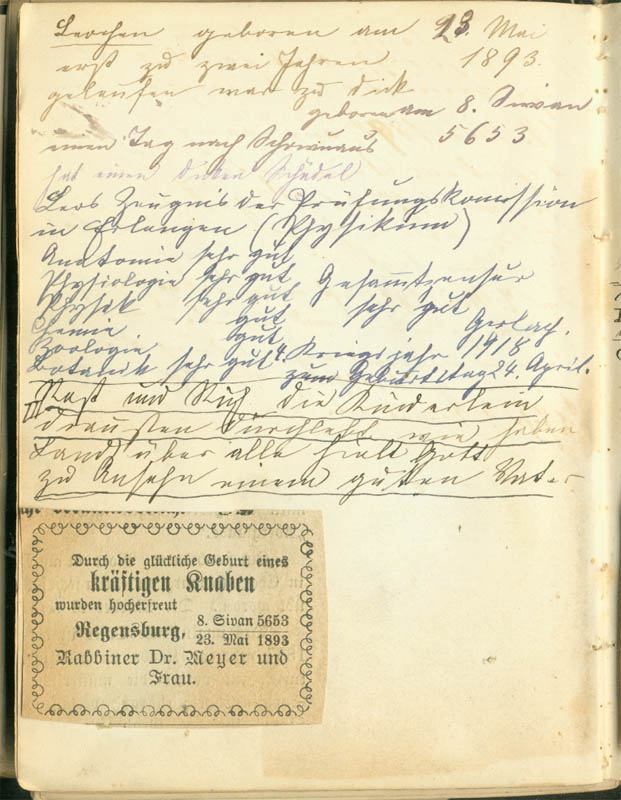 Leochen geboren am 23. Mai
erst zu zwei Jahren 1893.
gelaufen war zu dick
geboren am 8. Sivan
einen Tag nach Schewuaus 5653
hat einen dicken Schädel
Leos Zeugnis der Prüfungskomission
in Erlangen (Physikum)
Anatomie sehr gut
Physiologie sehr gut Gesamtzensur
Physik sehr gut sehr gut
Chemie gut Gerlach.
Zoologie gut
Botanik sehr gut 4. Kriegsjahr 1918
zum Geburtstag 24. April.
und die Kinderlein
draussen wie haben
über alle Gott
zu Ansehn einem guten
Durch die glückliche Geburt eines
kräftigen Knaben
wurden hocherfreut
Regensburg, 8. Sivan 5653
23. Mai 1893
Rabbiner Dr. Meyer und
Frau.